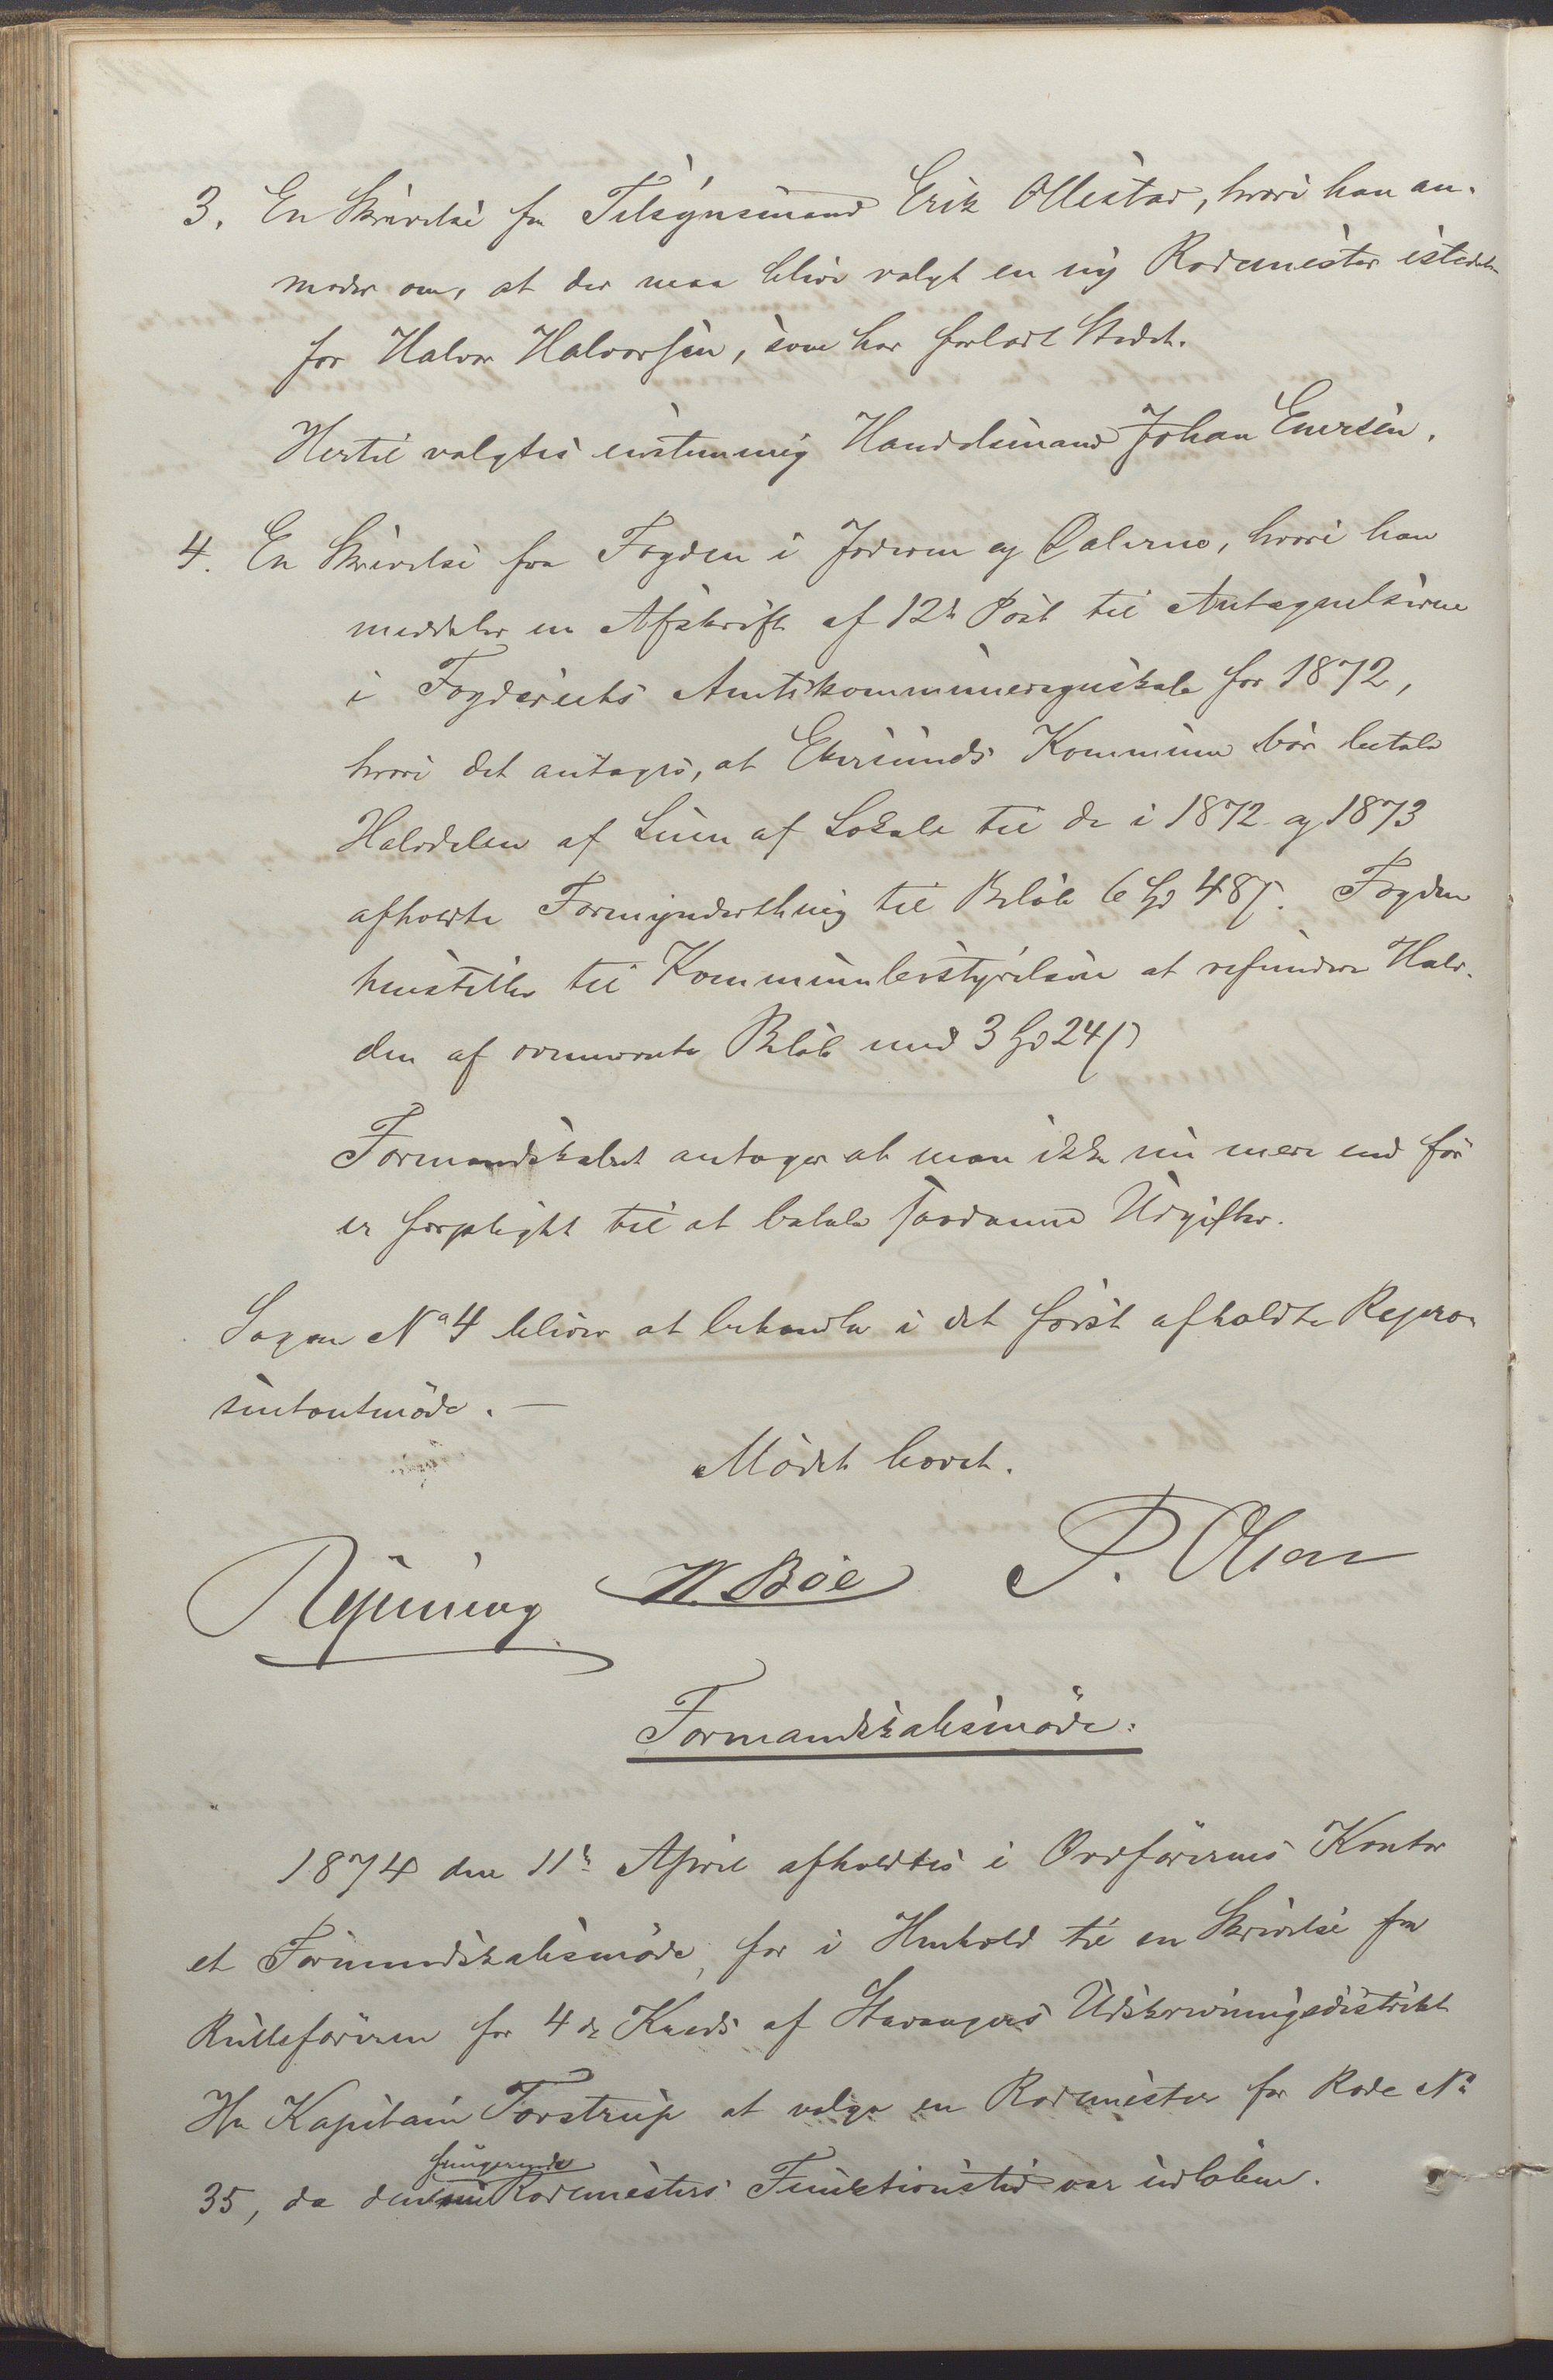 3. En Skrivelse fra Tilsynsmand Erik Ollestad, hvori han an-
moder om, at der maa blive valgt en ny Rodemester istedet
for Halvor Halvorsen, som har forladt Stedet.
Hertil valgtes enstemmig Handelsmand Johan Enersen.
4. En Skrivelse fra Fogden i Jæderen og Dalerne, hvori han
meddeler en Afskrift af 12te Post til Antegnelserne
i Fogderiets Amtskommuneregnskab for 1872,
hvori det antages, at Ekersunds Kommune bør betale
Halvdelen af Leien af Lokale til de i 1872 og 1873
afholdte Formynderthing til Beløb 6 Spd 48 ß. Fogden
henstiller til Kommunebestyrelsen at refundere Halv-
den af ovennævnte Beløb med 3 Spd 24 ß
Formandskabet antager at man ikke nu mere end før
er forpligtet til at betale saadanne Udgifter.
Sagen No 4 bliver at behandle i det først afholdte Repræ-
sentantmøde. —
Mødet hævet.
W. Böe P. Olsen
Formandskabsmøde.
1874 den 11te April afholdtes i Ordførerens Kontor
et Formandskabsmøde, for i Henhold til en Skrivelse fra
Rulleføreren for 4de Kreds af Stavangers Udskrivningsdistrikt
Hr Kapitain Torstrup at vælge en Rodemester for Rode No
35, da den fungerende Rodemesters Funktionstid var udløben.